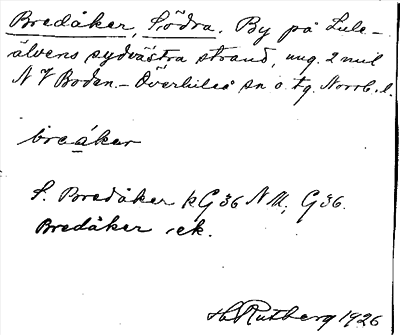 Bredåker, Södra. By på Lule-
älvens sydvästra strand, ung. 2 mil
N V Boden. - Överluleå sn o. tg. Norrb. l.
breåker
S. Bredåker kG36 NV, G36.
Bredåker ek.
Rutberg 1926